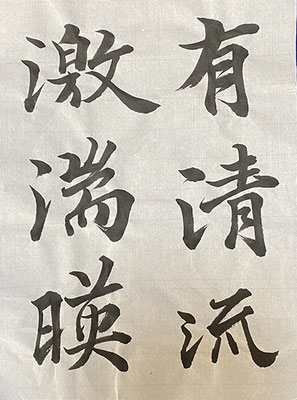 有清流
激湍暎